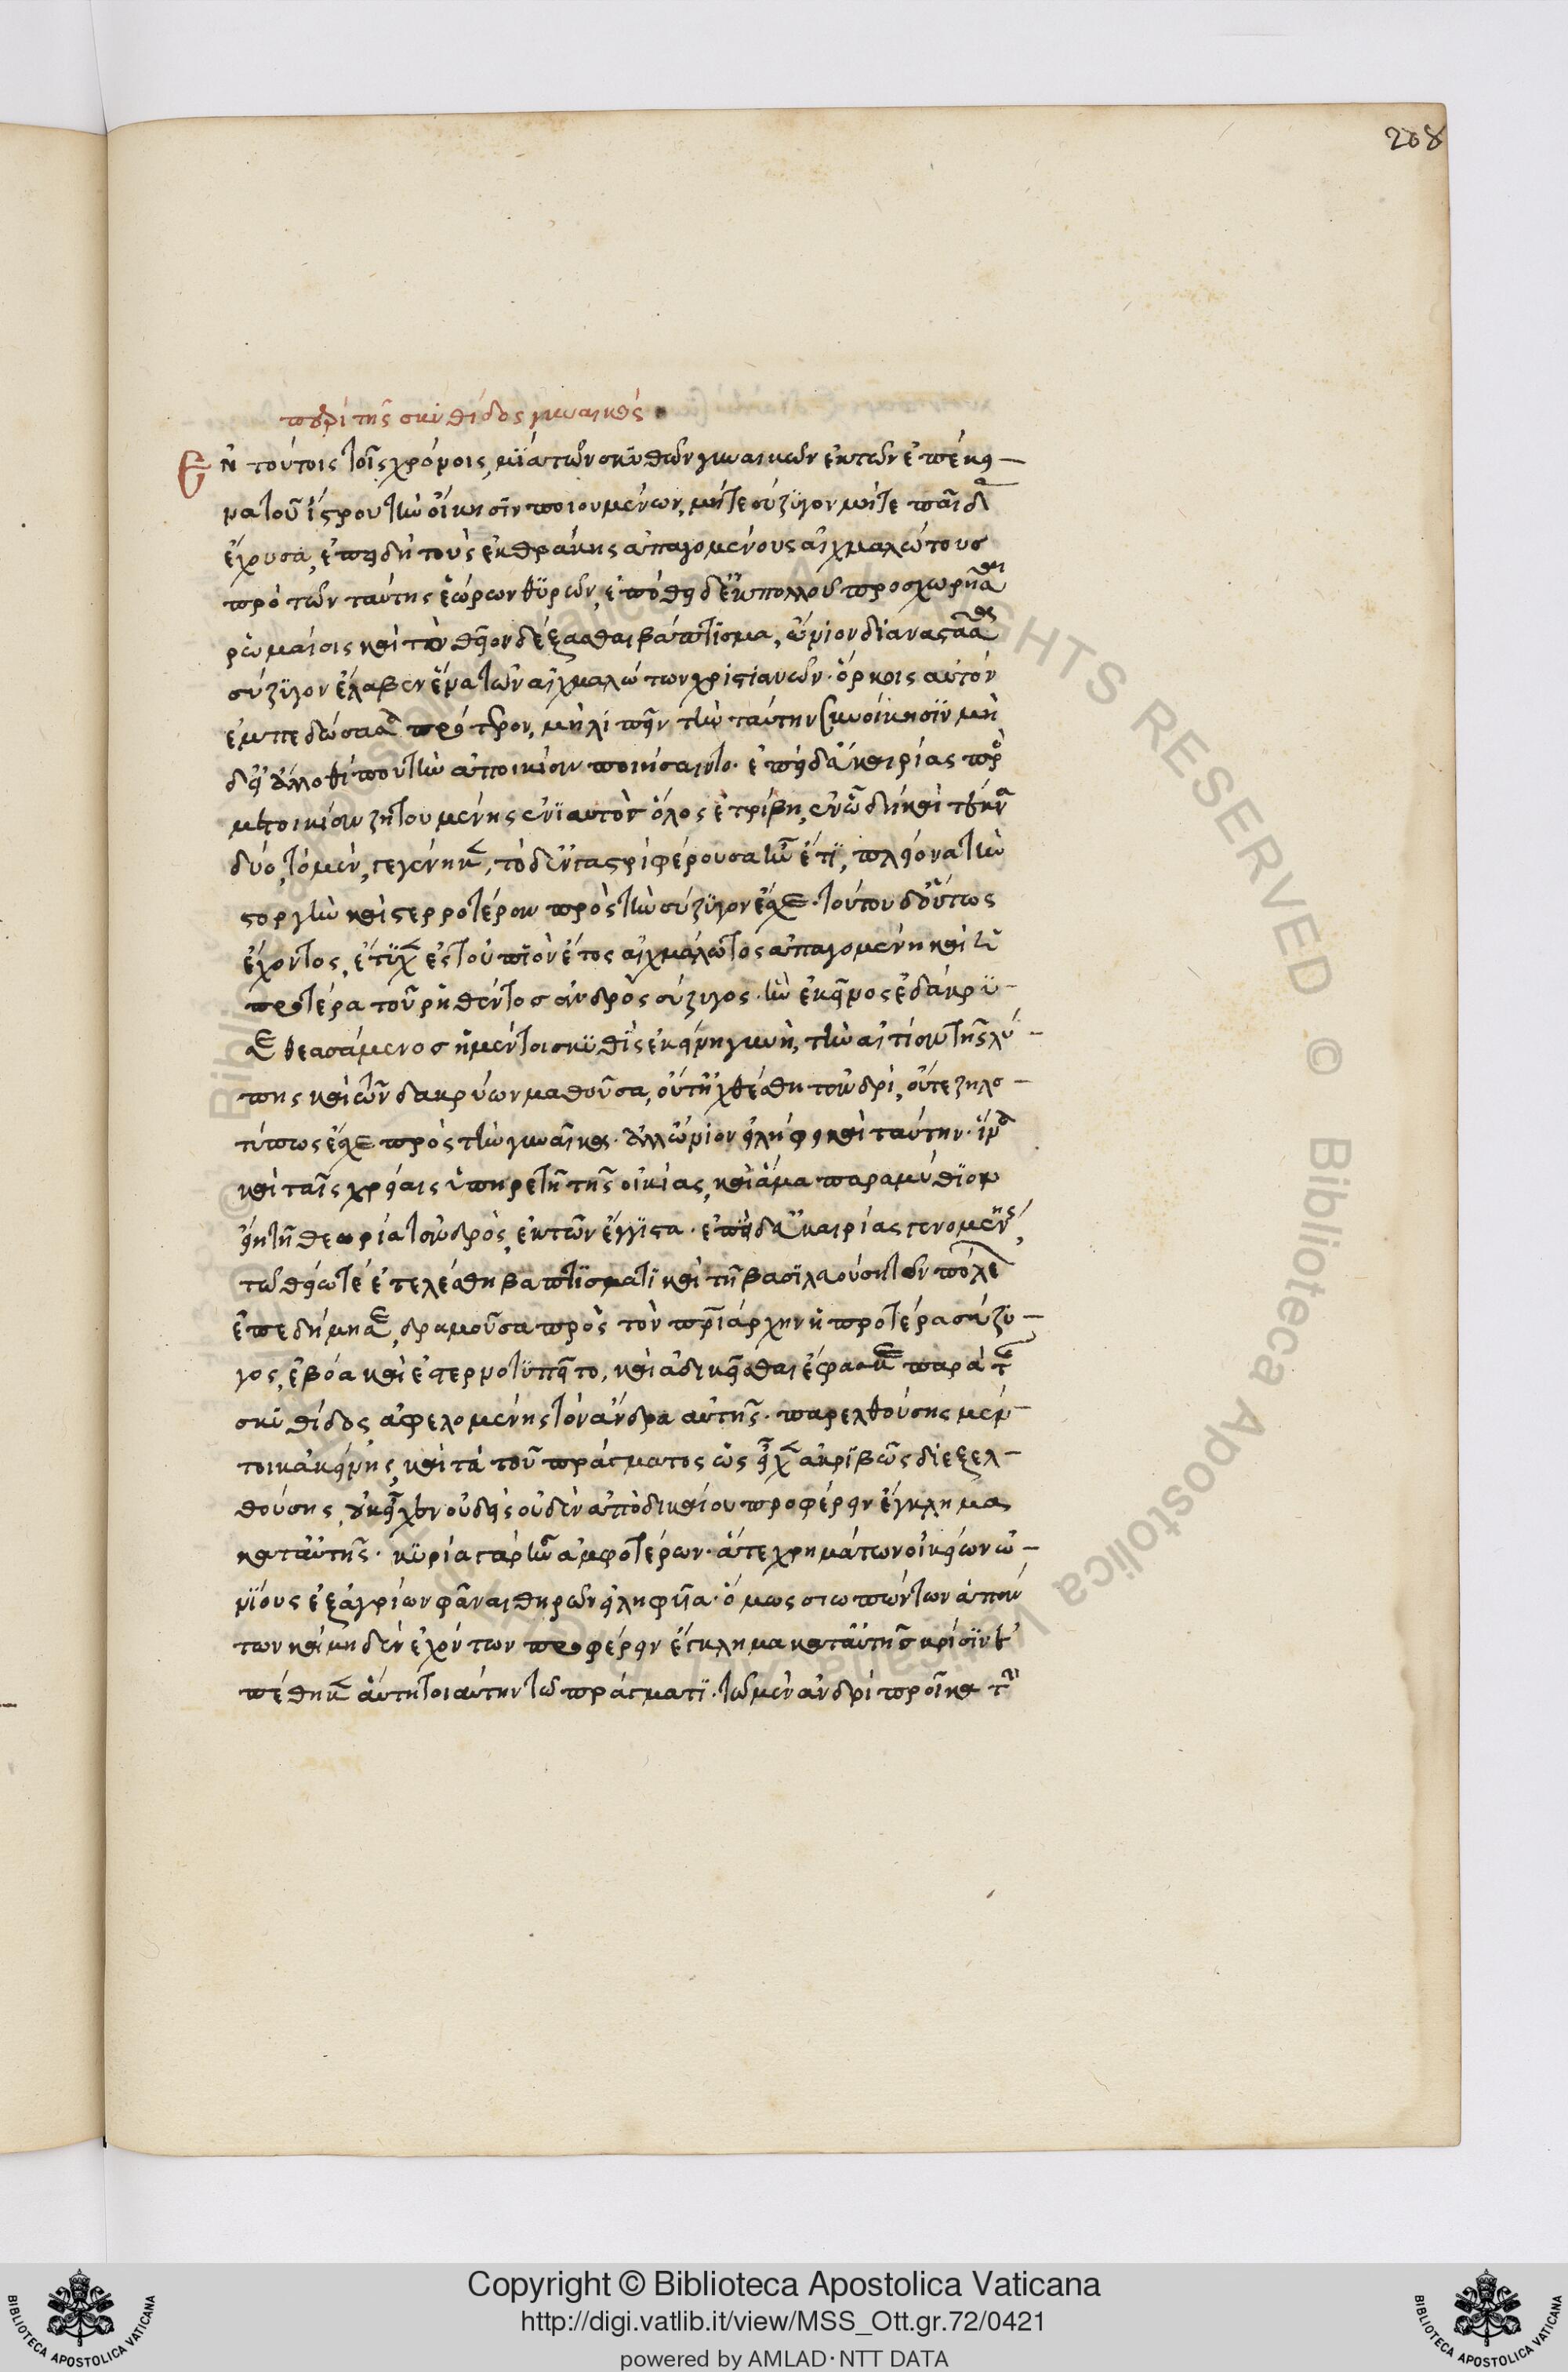 περὶ τῆς σκυθίδος γυναικός
Ἐν τούτοις τοῖς χρόνοις, μία τῶν σκυθῶν γυναικῶν ἐκ τῶν ἐπέκει-
να τοῦ ἴστρου τὴν οἴκησιν ποιουμένων, μήτε σύζυγον μήτε παῖδα
ἔχουσα, ἐπειδὴ τοὺς ἐκ θράκης ἀπαγομένους αἰχμαλώτους
πρὸ τῶν ταύτης ἑώρων θυρῶν, ἐπόθει δ' ἐκ πολλοῦ προσχωρῆσαι
ῥωμαίοις καὶ τὸ θεῖον δέξασθαι βάπτισμα, ὤνιον
σύζυγον ἔλαβεν ἕνα τῶν αἰχμαλώτων χριστιανῶν· ὅρκοις αὐτὸν
ἐμπεδώσασα πρότερον, μὴ λιπεῖν τὴν ταύτην συνοίκησιν μη
δ' εἰ ἄλλοθί που τὴν ἀποίκισιν ποιήσαιντο· ἐπεὶ δ' εὐκαιρίας πρὸς
μετοίκισιν ζητουμένης ἐνιαυτὸς ὅλος ἐτρίβη, ἐν ᾧ δὴ καὶ τέκνα
δύο, τὸ μὲν, γεγένηκε, τὸ δ' ἐν γαστρὶ φέρουσα ἦν ἔτι, πλείονα τὴν
στοργὴν καὶ στερροτέραν πρὸς τὴν σύζυγον ἔσχε· τούτου δ' οὕτως
ἔχοντος, ἔτυχεν ἐς τοὐπιὸν ἔτος αἰχμάλωτος ἀπαγομένη καὶ ἡ
προτέρα τοῦ ῥηθέντος ἀνδρὸς σύζυγος· ἣν ἐκεῖνος ἐδάκρυ-
σε θεασάμενος ἡ μέντοι σκυθὶς ἐκείνη γυνὴ, τὴν αἰτίαν τῆς λύ-
πης καὶ τῶν δακρύων μαθοῦσα, οὔτ' ἠχθέσθη τἀνδρὶ, οὔτε ζηλο-
τύπως ἔσχε πρὸς τὴν γυναῖκα· ἀλλ' ὤνιον εἰλήφει καὶ ταύτην· ἵνα
καὶ ταῖς χρείαις ὑπηρετῇ τῆς οἰκίας, καὶ ἅμα παραμύθιον
εἴη τῇ θεωρίᾳ τἀνδρὸς, ἐκ τῶν ἔγγιστα· ἐπεὶ δ' εὐκαιρίας γενομένης,
τῷ θείῳ τε ἐτελέσθη βαπτίσματι καὶ τῇ βασιλευούσῃ τῶν πόλεων
ἐπεδήμησε, δραμοῦσα πρὸς τὸν πατριάρχην ἡ προτέρα σύζυ-
γος, ἐβόα καὶ ἐστερνοτυπεῖτο, καὶ ἀδικεῖσθαι ἔφασκε παρὰ τῆς
σκυθίδος ἀφελομένης τὸν ἄνδρα αὐτῆς· παρελθούσης μέν-
τοι κἀκείνης, καὶ τὰ τοῦ πράγματος ὡς εἶχεν ἀκριβῶς διεξελ-
θούσης, οὐκ εἶχεν οὐδεὶς οὐδὲν ἀπὸ δικαίου προφέρειν ἔγκλημα
κατ' αὐτῆς· κυρία γὰρ ἦν ἀμφοτέρων· ἅτε χρημάτων οἰκείων ὠ-
νίους ἐξ ἀγρίων φάναι θηρῶν εἰληφυῖα· ὅμως σιωπώντων ἁπάν
των καὶ μηδὲν ἐχόντων προφέρειν ἔγκλημα κατ' αὐτῆς κρίσιν ἐ
πέθηκεν αὐτὴ τοιαύτην τῷ πράγματι· τῷ μὲν ἀνδρὶ προῖκα τὴν
208
Copyright © Biblioteca Apostolica Vaticana
http://digi.vatlib.it/view/MSS_Ott.gr.72/0421
powered by AMLAD·NTT DATA
BIBLIOTECA APOSTOLICA VATICANA
BIBLIOTECA APOSTOLICA VATICANA